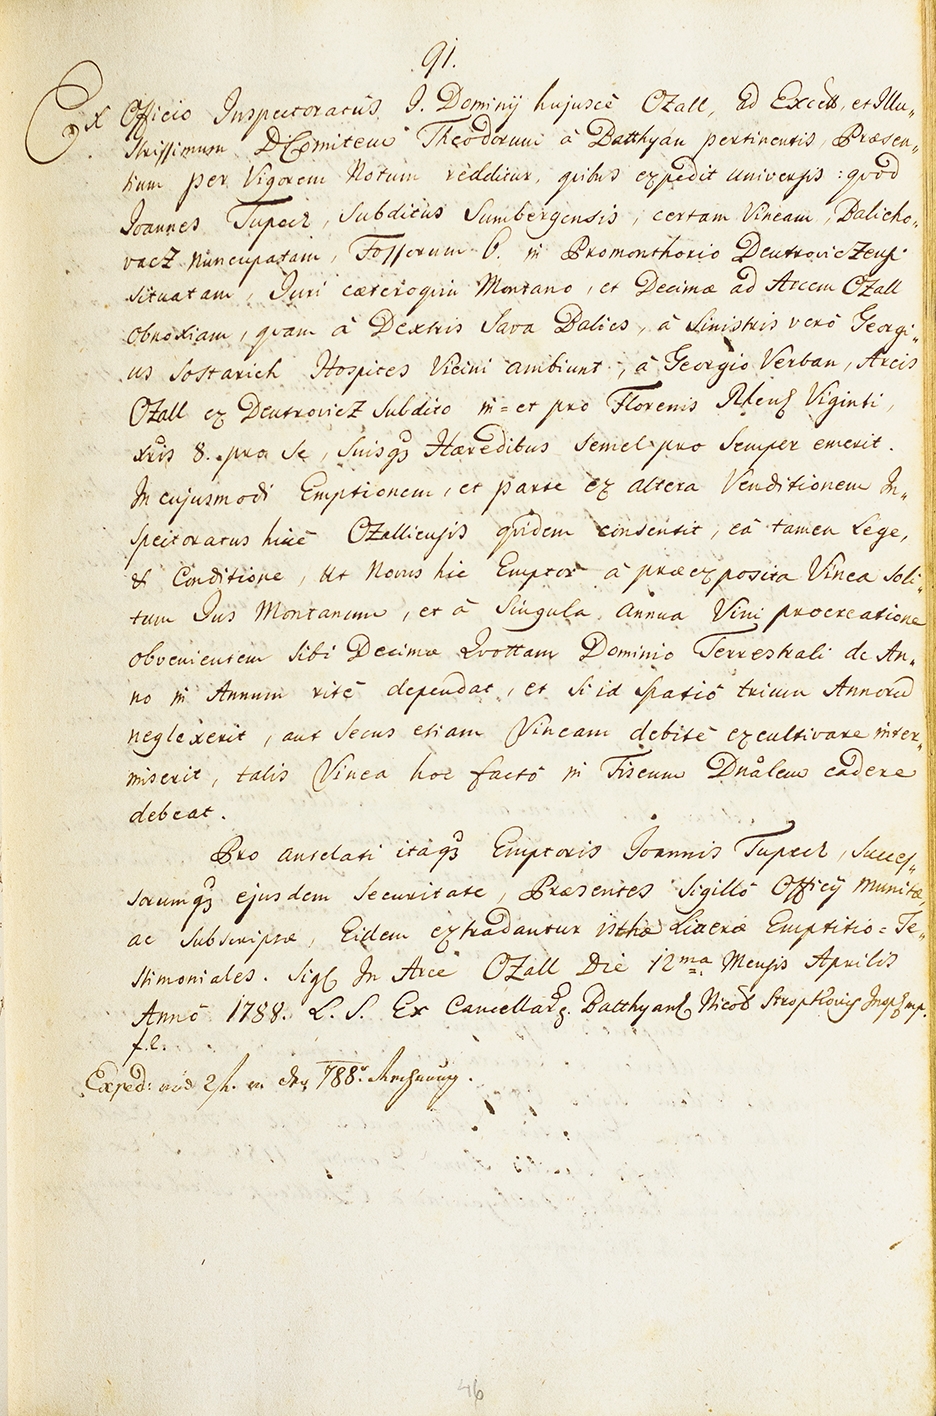 91.
Ex Officio Inspectoratûs I. Dominij hujusce Ozall, ad Excell, et Illu„
strissimum D Comitem Theodorum â Batthyan pertinentis, Præsen„
tium per Vigorem Notum redditur, quibus expedit universis : quod
Joannes Tupeck, Subditus Sumbergensis, certam Vineam, Balicho„
vacz nuncupatam, Fossorum 6. in Promonthorio Deutroviczensi
situatam, Juri cæteroquin Montano, et Decimæ ad Arcem Ozall
obnoxiam, quam â Dextris Sava Balics, â Sinistris verô Georgi„
us Sostarich Hospites Vicini ambiunt, â Georgio Verban, Arcis
Ozall ex Deutrovicz Subdito in = et pro Florenis Rhens Viginti,
xris 8. pro Se, Suisq3 Hæredibus Semel pro Semper emerit.
In cujusmodi Emptionem, et parte ex altera Venditionem In„
spectoratus hicce Ozalliensis quidem consensit, eâ tamen Lege,
& Conditione, ut Novus hic Emptor â præexposita Vinea Soli„
tum Jus Montanum, et â Singula annua Vini procreatione
obvenientem Sibi Decimæ Quottam Dominio Terrestrali de An„
no in Annum ritê dependat, et Si id Spatiô trium Annorum
neglexerit, aut Secus etiam Vineam debitê excultivare inter„
miserit, talis Vinea hoc factô in Fiscum Dnalem cadere
debeat.
Pro antelati itaq3 Emptoris Joannis Tupeck, Succes„
sorumq3 ejusdem Securitate, Præsentes Sigillô Officij munitæ,
ac Subscriptæ, Eidem extradantur isthæ Literæ Emptitio = Te„
stimoniales. Sigl In Arce Ozall Die 12ma Mensis Aprilis
Annô 1788. L. S. Ex Cancella Batthyan Nicol
f. 2.
Exped: 2 f. 788
46